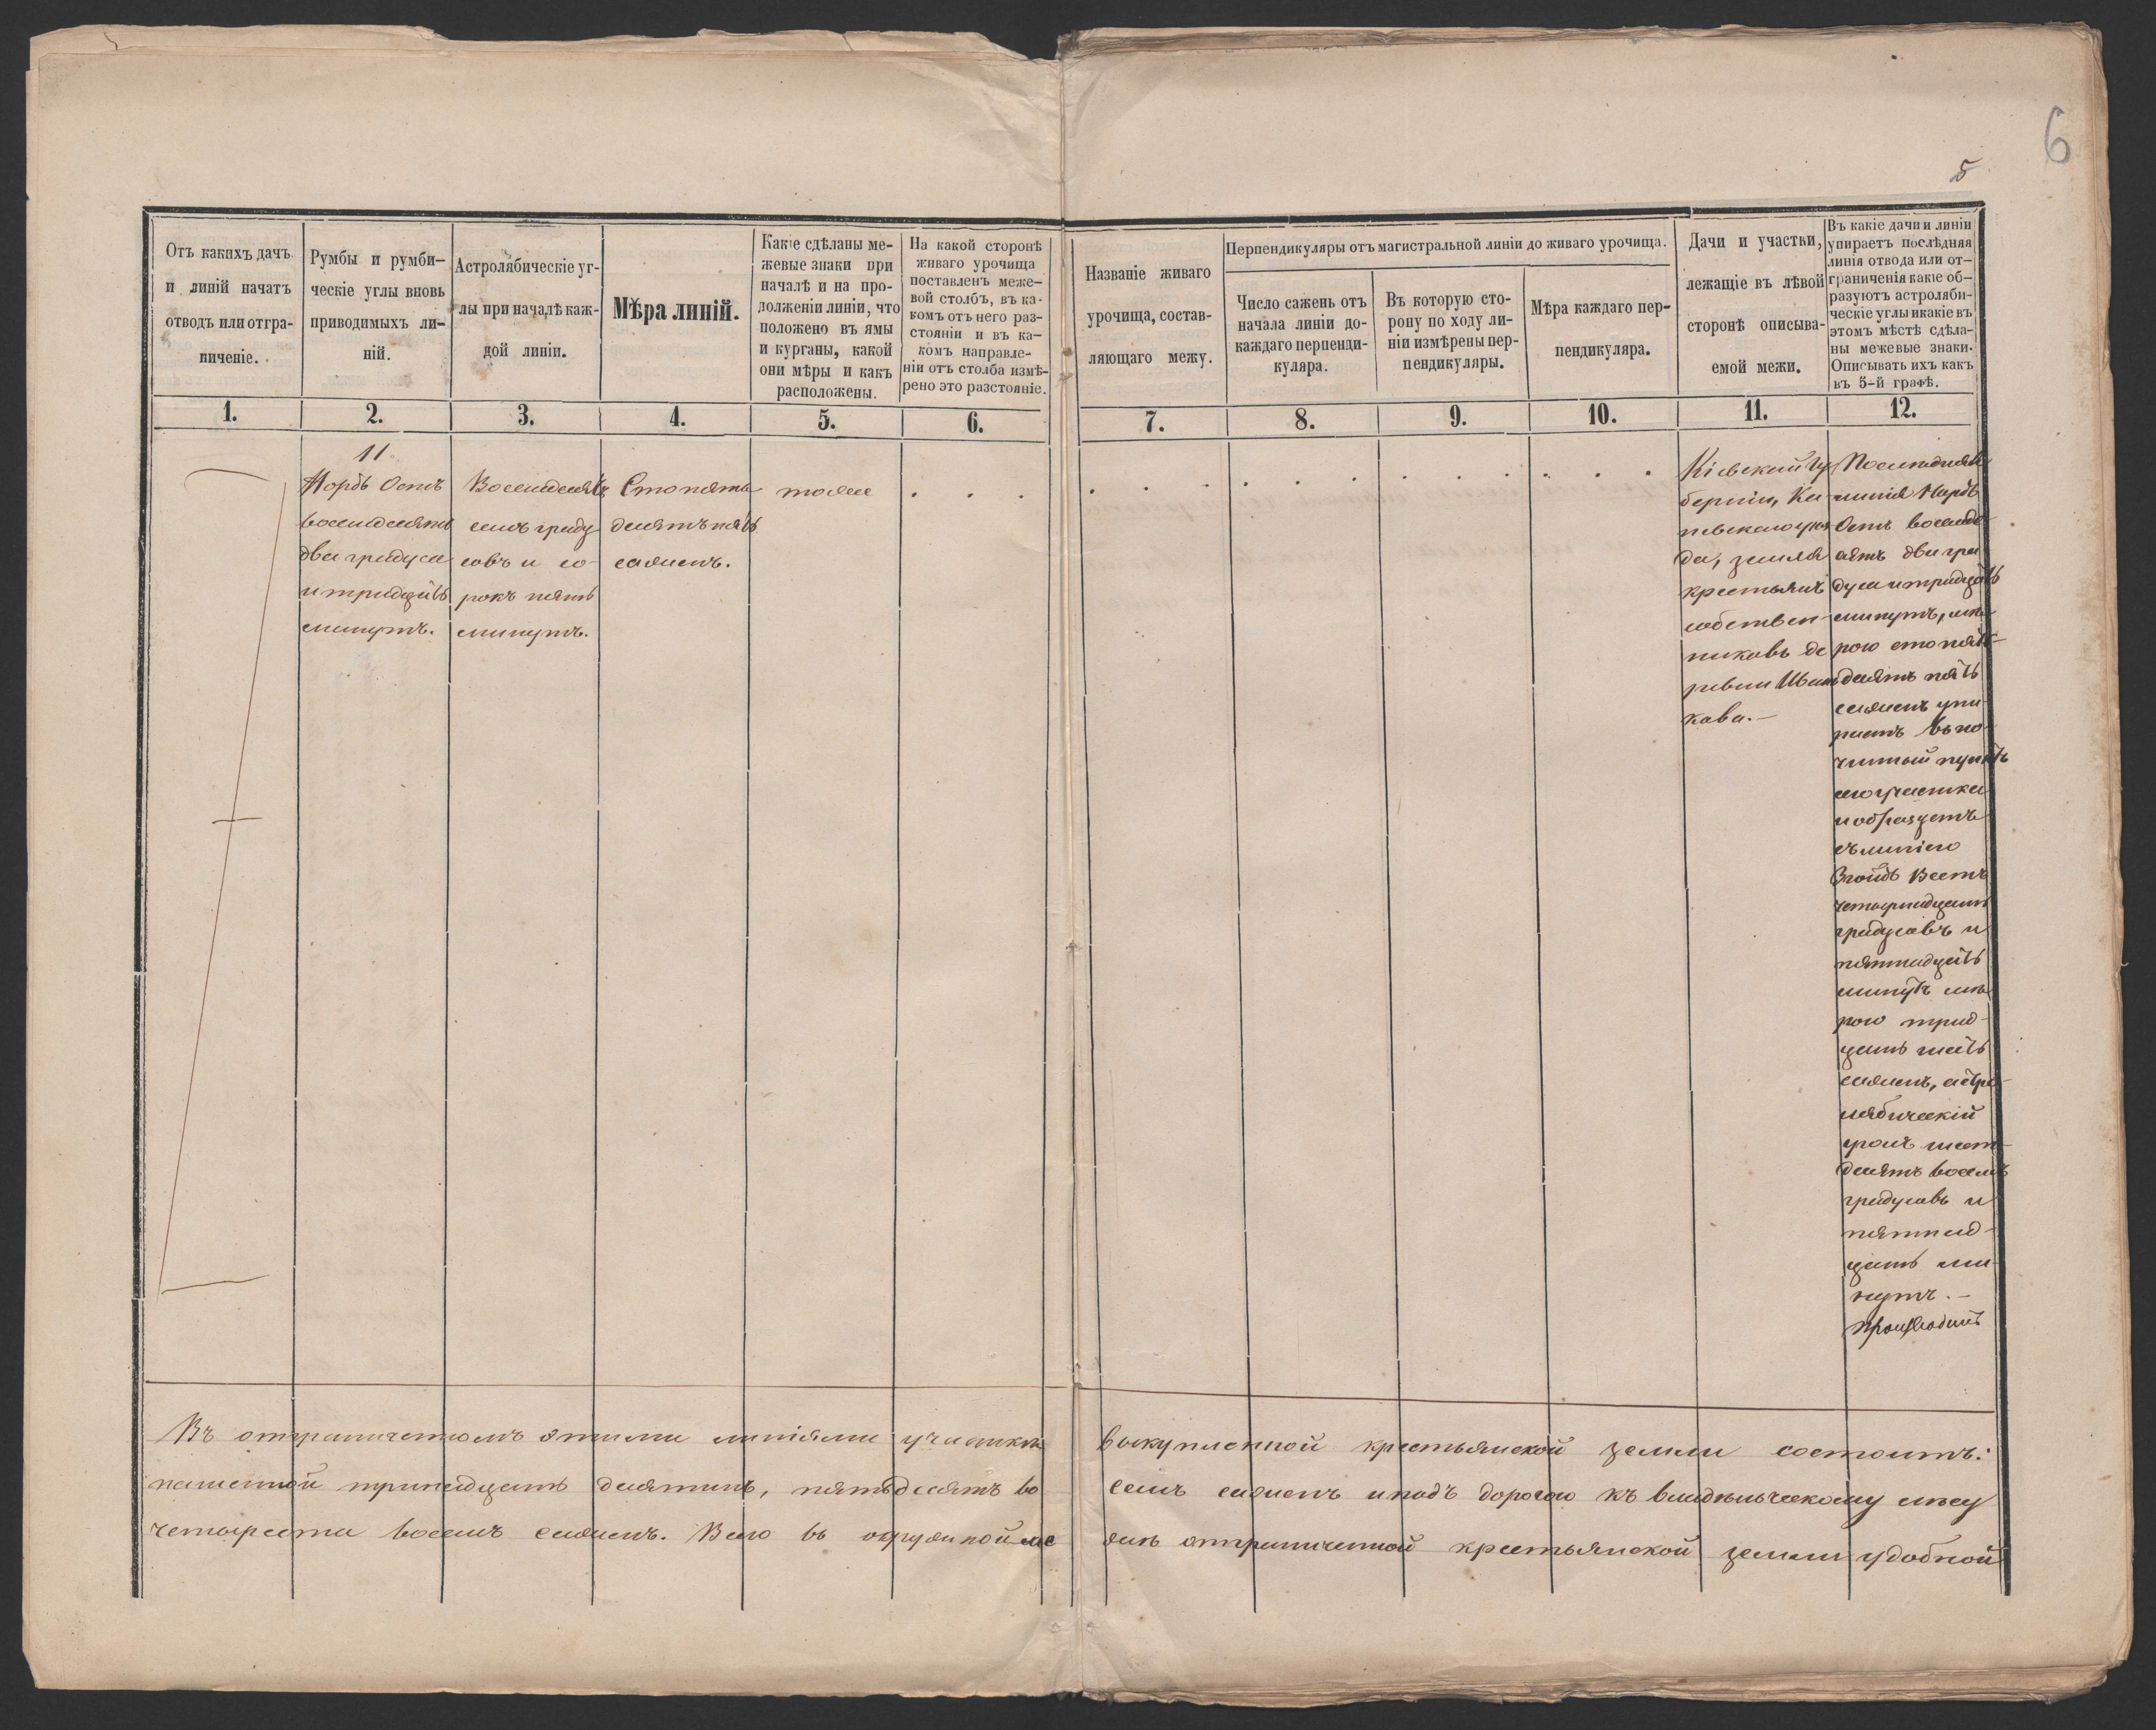 6
5
Отъ какихъ дачъ
и линій начатъ
отводъ или отгра-
ниченіе.
Румбы и румби-
ческіе углы вновь
приводимыхъ ли-
ній.
Астролябическіе уг-
лы при началѣ каж-
дой линіи.
Мѣра линій.
Какіе сдѣланы ме-
жевые знаки при
началѣ и на про-
долженіи линіи, что
положено въ ямы
и курганы, какой
они мѣры и какъ
расположены.
На какой сторонѣ
живаго урочища
поставленъ меже-
вой столбъ, въ ка-
комъ отъ него раз-
стояніи и въ ка-
комъ направле-
ніи отъ столба измѣ-
рено это разстояніе.
Названіе живаго
урочища, состав-
ляющаго межу.
Перпендикуляры отъ магистральной линіи до живаго урочища.
Число сажень отъ
начала линіи до-
каждаго перпенди-
куляра.
Въ которую сто-
рону по ходу ли-
ніи измѣрены пер-
пендикуляры.
Мѣра каждаго пер-
пендикуляра.
Дачи и участки,
лежащіе въ лѣвой
сторонѣ описыва-
емой межи.
Въ какіе дачи и линіи
упираетъ послѣдняя
линія отвода или от-
граниченія какіе об-
разуютъ астроляби-
ческіе углы и какіе въ
этомъ мѣстѣ сдѣла-
ны межевые знаки.
Описывать ихъ какъ
въ 5-й графѣ.
1. 2. 3. 4. 5. 6. 7. 8. 9. 10. 11. 12.
11
Нордъ Остъ
восемдесятъ
два градуса
и тридцать
минутъ.
Восемдесятъ
семъ граду
совъ и со-
рокъ пять
минутъ.
Сто пять
десятъ пять
сажень.
тоже
Кіевской гу
берніи, Ка
невскаго уѣз
да, земля
крестьянъ
собствен-
никовъ де
ревни Иван
кова.-
Последняя
линія Нордъ
Остъ восемде
сятъ два гра
дуса и тридцать
минутъ, мѣ
рою сто пять-
десятъ пять
сажень упи
раетъ въ по
чатый пунктъ
сего участка
и образуетъ
съ линіею
Зюйдъ Вестъ
четырнадцать
градусовъ и
пятнадцать
минутъ мѣ
рою трид-
цать шесть
сажень, астро-
лябическій
уголъ шест-
десятъ восемъ
градусовъ и
пятнад-
цать ми
нутъ.-
Въ отграниченномъ этими линіями участкѣ выкупленной крестьянской земли состоитъ:
пашенной тринадцать десятинъ, пятьдесятъ во семъ сажень и подъ дорогою къ владѣльческому лѣсу
четыреста восемъ сажень. Всего въ окружной ме жѣ отграниченной крестьянской земли удобной